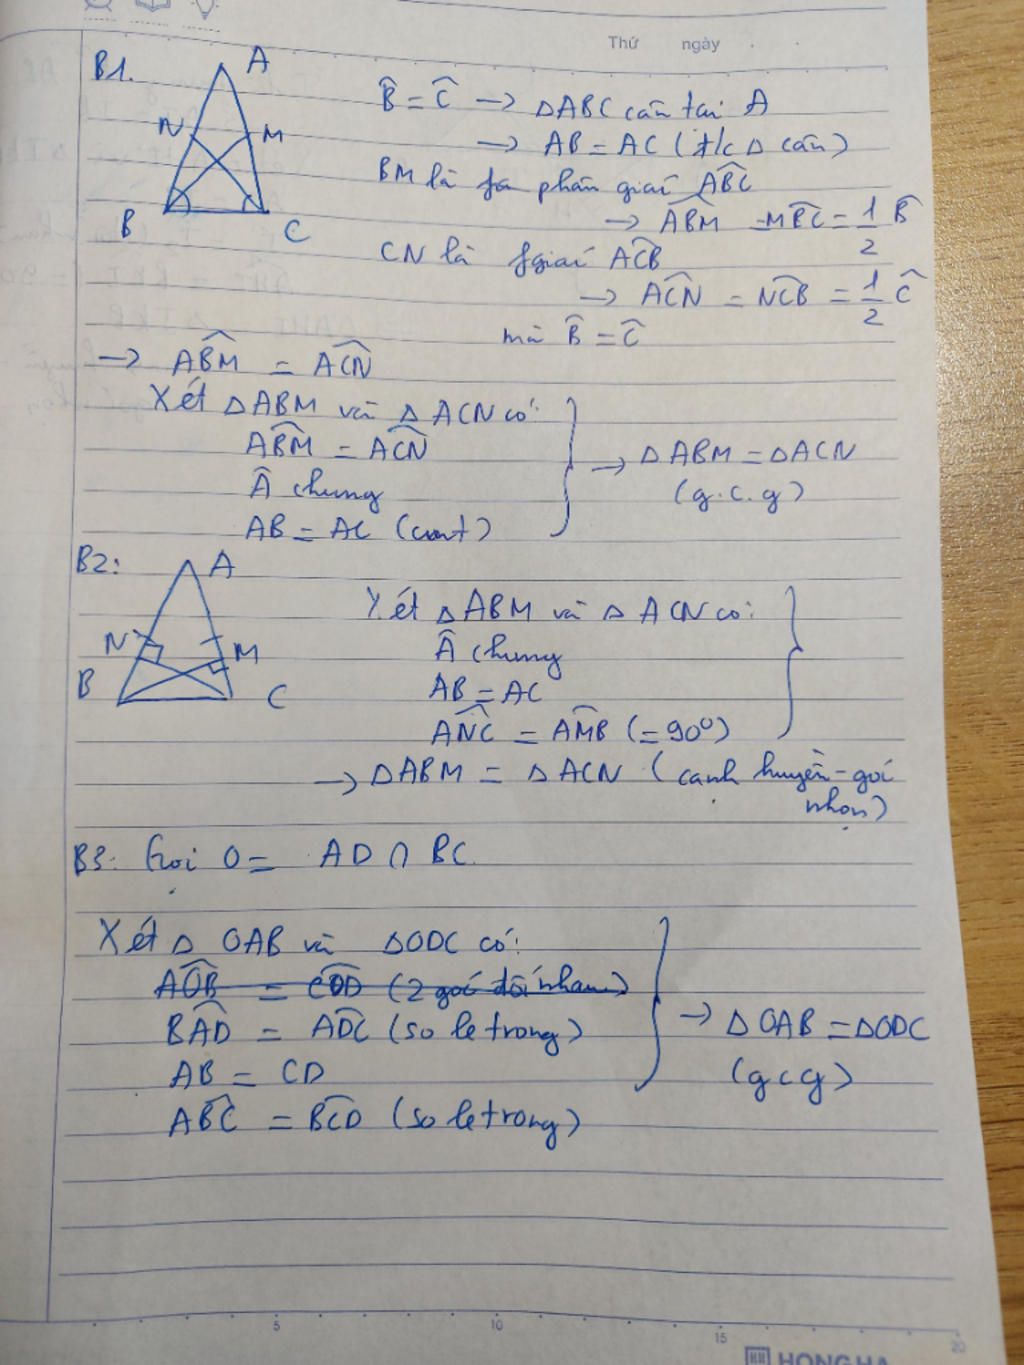 Thứ ngày
B1.
A
N
M
B
C
B̂ = Ĉ → ΔABC cân tại A
→ AB = AC (t/c Δ cân)
BM là fa phân giác ABC
→ ABM = MBC = 1/2 B̂
CN là fgiác ACB
→ ACN = NCB = 1/2 Ĉ
mà B̂ = Ĉ
→ ABM = ACN
Xét ΔABM và Δ ACN có:
ABM = ACN
Â chung
AB = AC (cmt)
→ ΔABM = ΔACN
(g.c.g)
B2:
A
N
M
B
C
Xét ΔABM và Δ ACN có:
Â chung
AB = AC
ANC = AMB (= 90⁰)
→ ΔABM = ΔACN (cạnh huyền - góc
nhọn)
B3: Gọi O = AD ∩ BC.
Xét Δ OAB và ΔODC có:
AOB = COD (2 góc đối nhau)
BAD = ADC (so le trong)
AB = CD
ABC = BCD (so le trong)
→ ΔOAB = ΔODC
(gcg)
5 10 15 20
HONG HA